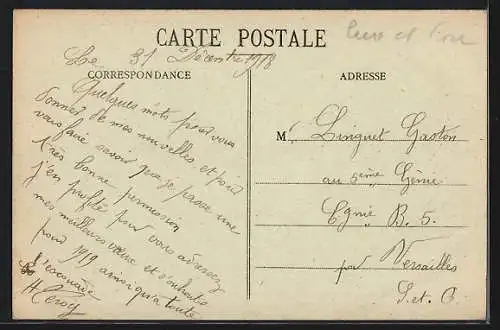 CARTE POSTALE
Le 31 Décembre 1918
CORRESPONDANCE
ADRESSE
Quelques mots pour vous
donner de mes nouvelles et pour
vous faire savoir que je passe une
très bonne permission
j'en profite pour vous adresser
mes meilleurs vœux et souhaits
pour 1919 ainsi qu'a toute
l'escouade
M Linguet Gaston
au 5ème Génie
Cgnie B. 5.
par Versailles
S. et O.